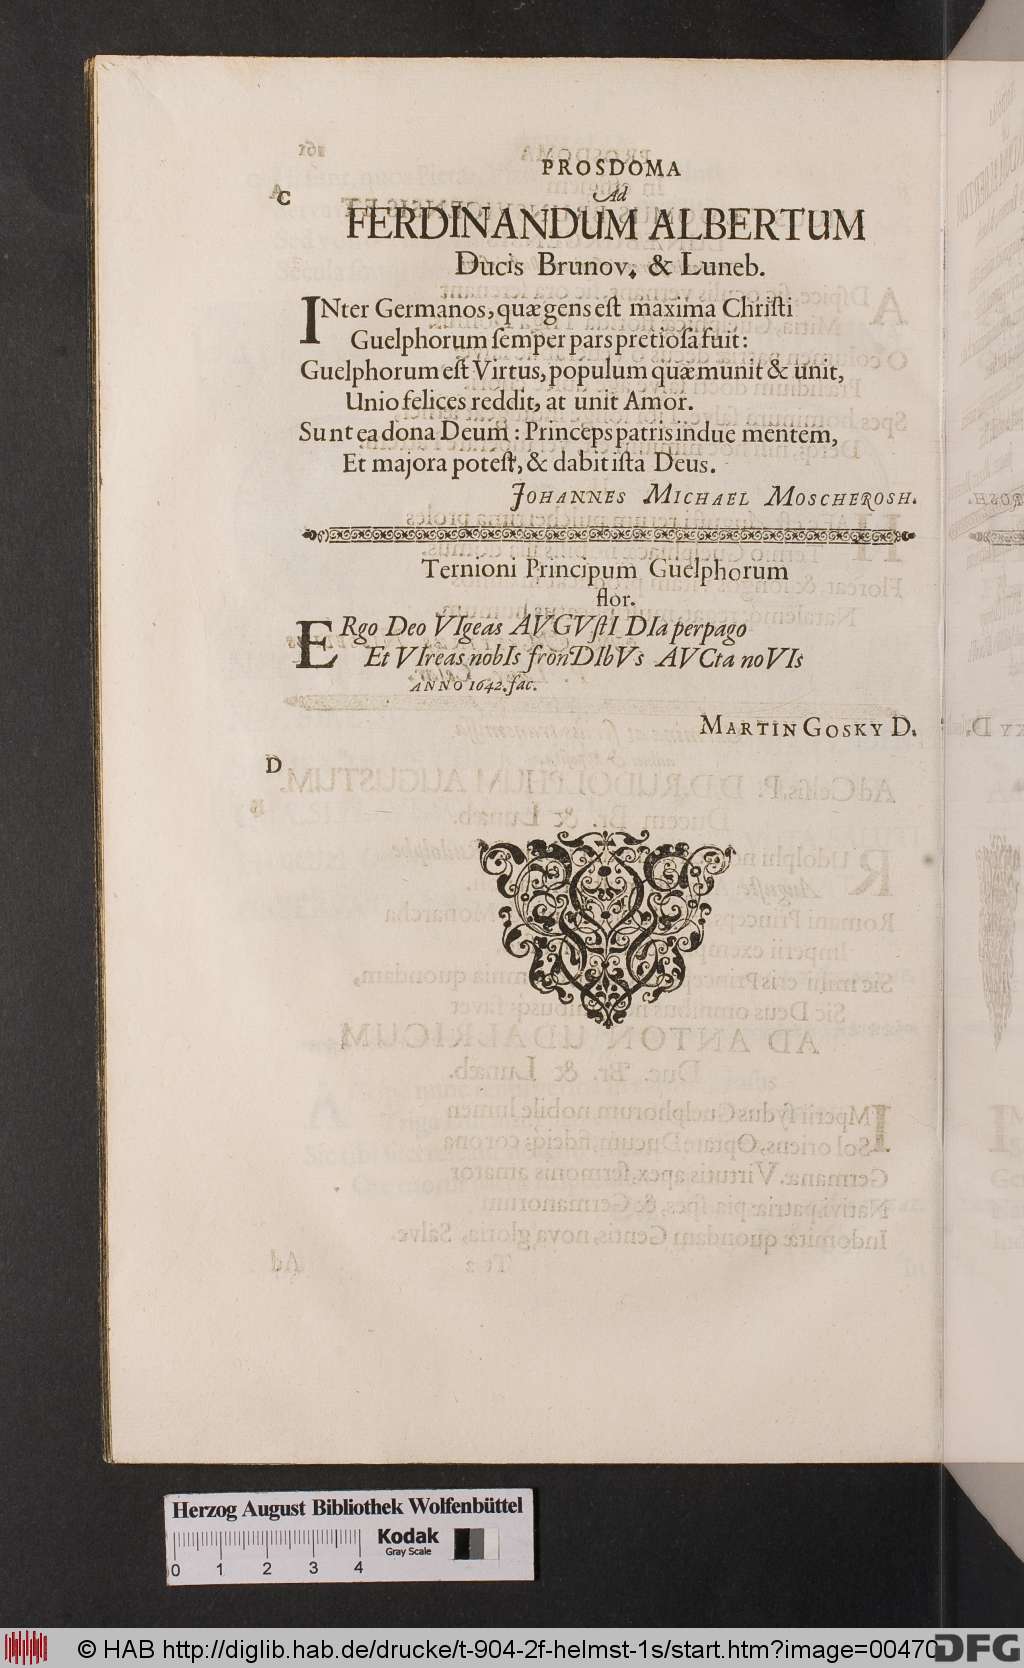 PROSDOMA
C
Ad
FERDINANDUM ALBERTUM
Ducis Brunov. & Luneb.
INter Germanos, quæ gens est maxima Christi
Guelphorum semper pars pretiosa fuit:
Guelphorum est Virtus, populum quæ munit & unit,
Unio felices reddit, at unit Amor.
Sunt ea dona Deum: Princeps patris indue mentem,
Et majora potest, & dabit ista Deus.
JOHANNES MICHAEL MOSCHEROSH.
Ternioni Principum Guelphorum
flor.
ERgo Deo VIgeas AVGVstI DIa perpago
Et VIreas nobIs fronDIbVs AVCta noVIs
ANNO 1642. fac.
MARTIN GOSKY D.
D
Herzog August Bibliothek Wolfenbüttel
0 1 2 3 4
Kodak
Gray Scale
© HAB http://diglib.hab.de/drucke/t-904-2f-helmst-1s/start.htm?image=00470
DFG